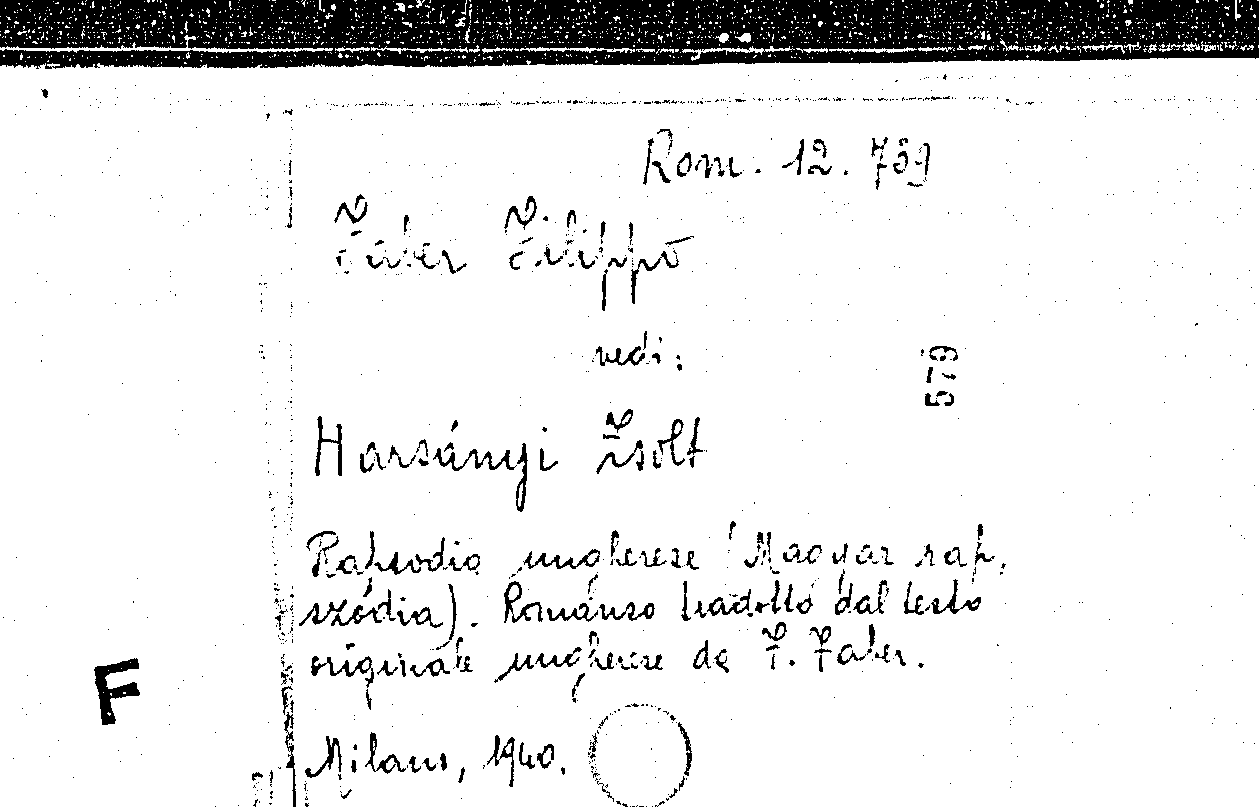 Rom. 12.739
Faber Filippo
vedi:
579
Harsányi Zsolt
Rapsodia ungherese (Magyar rap,
szódia). Romanzo tradotto dal testo
originale ungherese da F. Faber.
F
Milano, 1940.